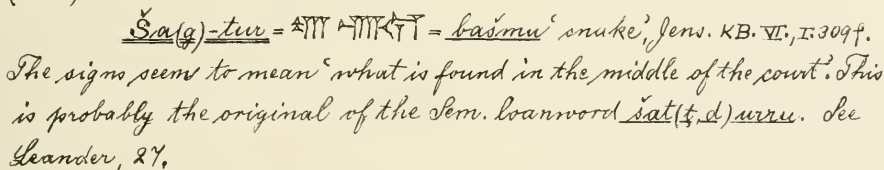 Ša(g)-tur = 𒊮 𒌉 = bašmu ‘snake’, Jens. KB. VI., I. 309 f.
The signs seem to mean ‘what is found in the middle of the court’. This
is probably the original of the Sem. loanword šat(ṭ,d)urru. See
Leander, 27.